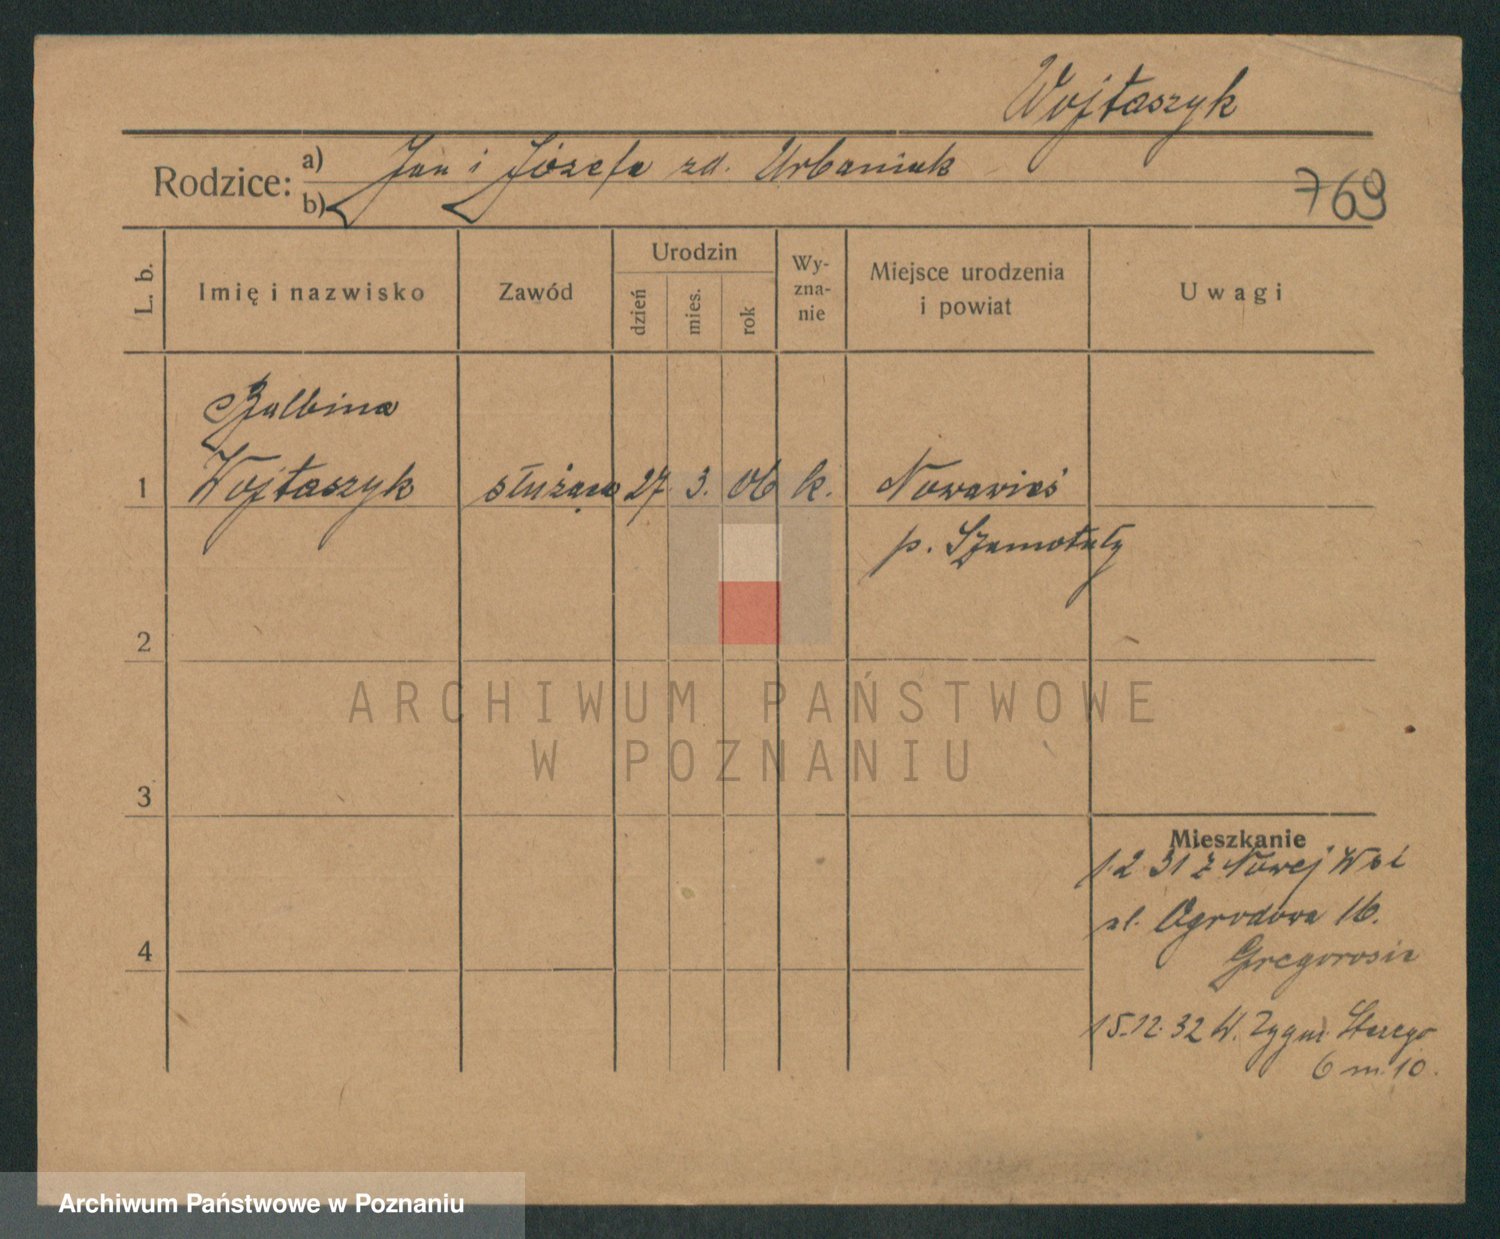 Wojtaszyk
Rodzice: a) Jan i Józefa zd. Urbaniak
b)
769
L. b.
Imię i nazwisko
Zawód
Urodzin
dzień
mies.
rok
Wy-
zna-
nie
Miejsce urodzenia
i powiat
Uwagi
Balbina
1 Wojtaszyk służąca 27. 3. 06 k. Nowawieś
p. Szamotuły
2
ARCHIWUM PAŃSTWOWE
W POZNANIU
3
Mieszkanie
1.2 31 z Nowej Wsi
ul. Ogrodowa 16.
4
15.12.32 W. Zygm. Starego
6 m. 10.
Archiwum Państwowe w Poznaniu